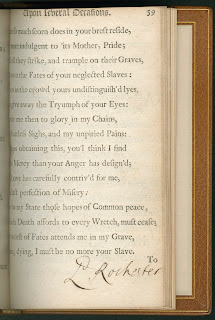 Upon several Occasions. 59
much scorn does in your brest reside,
indulgent to its Mother, Pride;
they strike, and trample on their Graves,
the Fates of your neglected Slaves:
the crowd yours undistinguish'd lyes,
give away the Tryumph of your Eyes:
me then to glory in my Chains,
Sighs, and my unpitied Pains:
obtaining this, you'l think I find
Mercy than your Anger has design'd;
has carefully contriv'd for me,
perfection of Misery:
my State those hopes of Common peace,
Death affords to every Wretch, must cease;
of Fates attends me in my Grave,
dying, I must be no more your Slave.
To
Ld Rochester